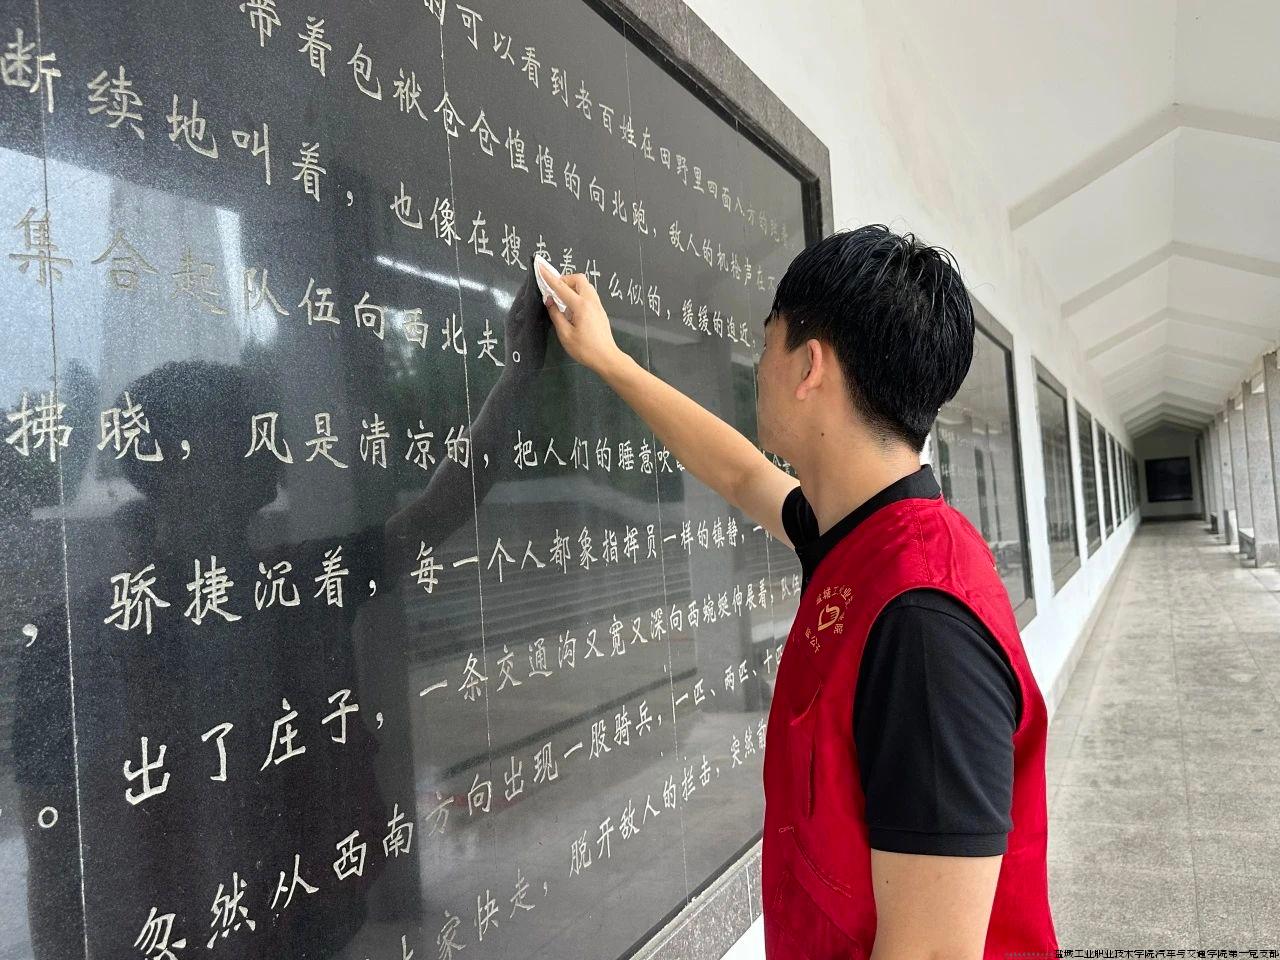 的可以看到老百姓在田野里四面八方的跑着，
带着包袱仓仓惶惶的向北跑，敌人的机枪声在不
断续地叫着，也像在搜索着什么似的，缓缓的迫近，
集合起队伍向西北走。
拂晓，风是清凉的，把人们的睡意吹
，骄捷沉着，每一个人都象指挥员一样的镇静，一
出了庄子，一条交通沟又宽又深向西蜿蜒伸展着，队伍
。忽然从西南方向出现一股骑兵，一匹、两匹、十四
大家快走，脱开敌人的拦击，突然前
盐城工业职业技术学院汽车与交通学院第一党支部